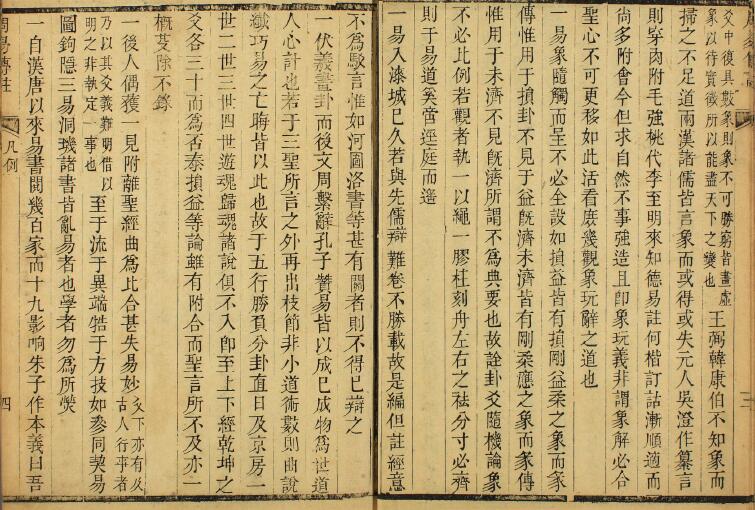 爻中復具數象則象不可勝窮皆畫虛
象以待實徵所以能盡天下之變也
王弼韓康伯不知象而
掃之不足道兩漢諸儒皆言象而或得或失元人吳澄作纂言
則穿肉附毛強桃代李至明來知德易註何楷訂詁漸順適而
尚多附會今但求自然不事強造且卽象玩義非謂象解必合
聖心不可更移如此活看庶幾觀象玩辭之道也
一易象隨觸而呈不必全設如損益皆有損剛益柔之象而彖
傳惟用于損卦不見于益旣濟未濟皆有剛柔應之象而彖傳
惟用于未濟不見旣濟所謂不為典要也故詮卦爻隨機論象
不必比例若觀者執一以繩一膠柱刻舟左右之祛分寸必齊
則于易道奚啻逕庭而遙
一易入漆城已久若與先儒辯難卷不勝載故是編但註經意
不為駁言惟如河圖洛書等甚有關者則不得已辯之
一伏羲畫卦而後文周繫辭孔子贊易皆以成已成物為世道
人心計也若于三聖所言之外再出枝節非小道術數則曲說
纖巧易之亡晦皆以此也故于五行勝負分卦直日及京房一
世二世三世四世遊魂歸魂諸說俱不入卽至上下經乾坤之
爻各三十而為否泰損益等論雖有附合而聖言所不及亦一
概芟除不錄
一後人偶獲一見附離聖經曲為比合甚失易妙
爻下亦有及
古人行事者
乃以其爻義難明借以
明之非執定一事也
至于流于異端牿于方技如參同契易
圖鉤隱三易洞璣諸書皆亂易者也學者勿為所熒
一自漢唐以來易書閱幾百家而十九影响朱子作本義曰吾
周易傳註
凡例
四